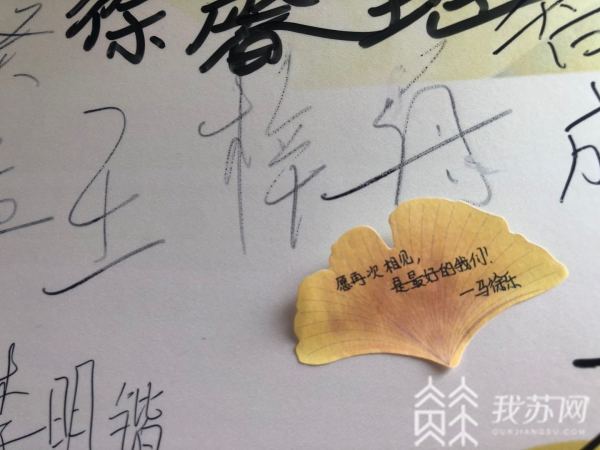 徐馨
王梓舟
愿再次相见，
是最好的我们！
—马徐乐
李明锴
我苏网
OURJIANGSU.COM